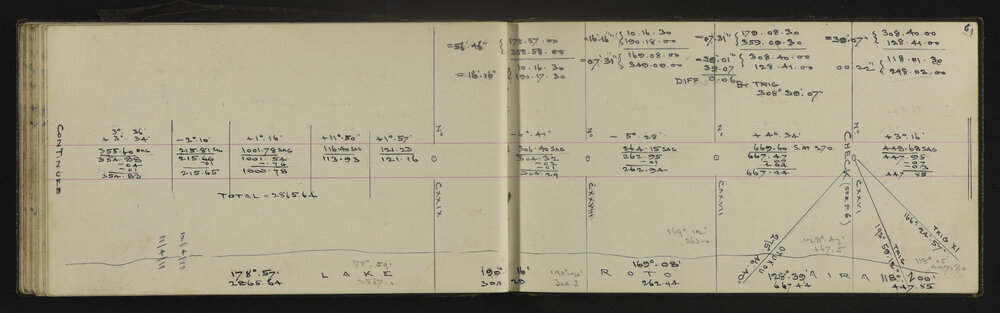 61
=56'.46" { 178.57.00
358.58.00
=16'.16" { 10.16.30
190.17.30
=16'.16" { 10.16.30
190.18.00
=07'.31" { 169.08.00
349.09.00
=07'.31" { 179.08.30
359.09.30
=39'.01" { 308.40.00
39.07 128.41.00
DIFF 0.06 BY TRIG
308° 39'.07"
=39'.07" { 308.40.00
128.41.00
00'.22" { 118.01.30
298.02.00
CONTINUED
3° 36'
+3° 34'
355.60 SAG
354.88
-.04
-.01
354.83
-2°.10'
215.81 SAG
215.66
-.01
215.65
+1°.16'
1001.78 SAG
1001.54
-.76
1000.78
+11°.50'
116.40 SAG
113.93
+1°.57'
121.23
121.16
TOTAL = 2865.64
No
CXXIX
-6°.41'
306.40 SAG
304.32
-.02
-.01
304.29
No
CXXVIII
-5°.28'
264.15 SAG
262.95
-.01
262.94
No
CXXVII
+4°.34'
669.60 S.AT 270.
667.47
667.44
CHECK (SEE P.6)
CXXVI
+3°.16'
448.68 SAG
447.95
-.07
-.03
447.85
216°.46'.40"
OTOROA
198°.59'.18"
TRIG
166°.24'.57"
TRIG XI
11/4/11
12/4/11
178°.59'
178°.57'
2865.64
LAKE
190° 16'
304 29
190°.20'
304.3
ROTO
169°.12'
169°.08'
262.94
128°.43'
667.5
128°.39'
667.44
AIRA
118°.05'
447.80
118°.00'
447.85